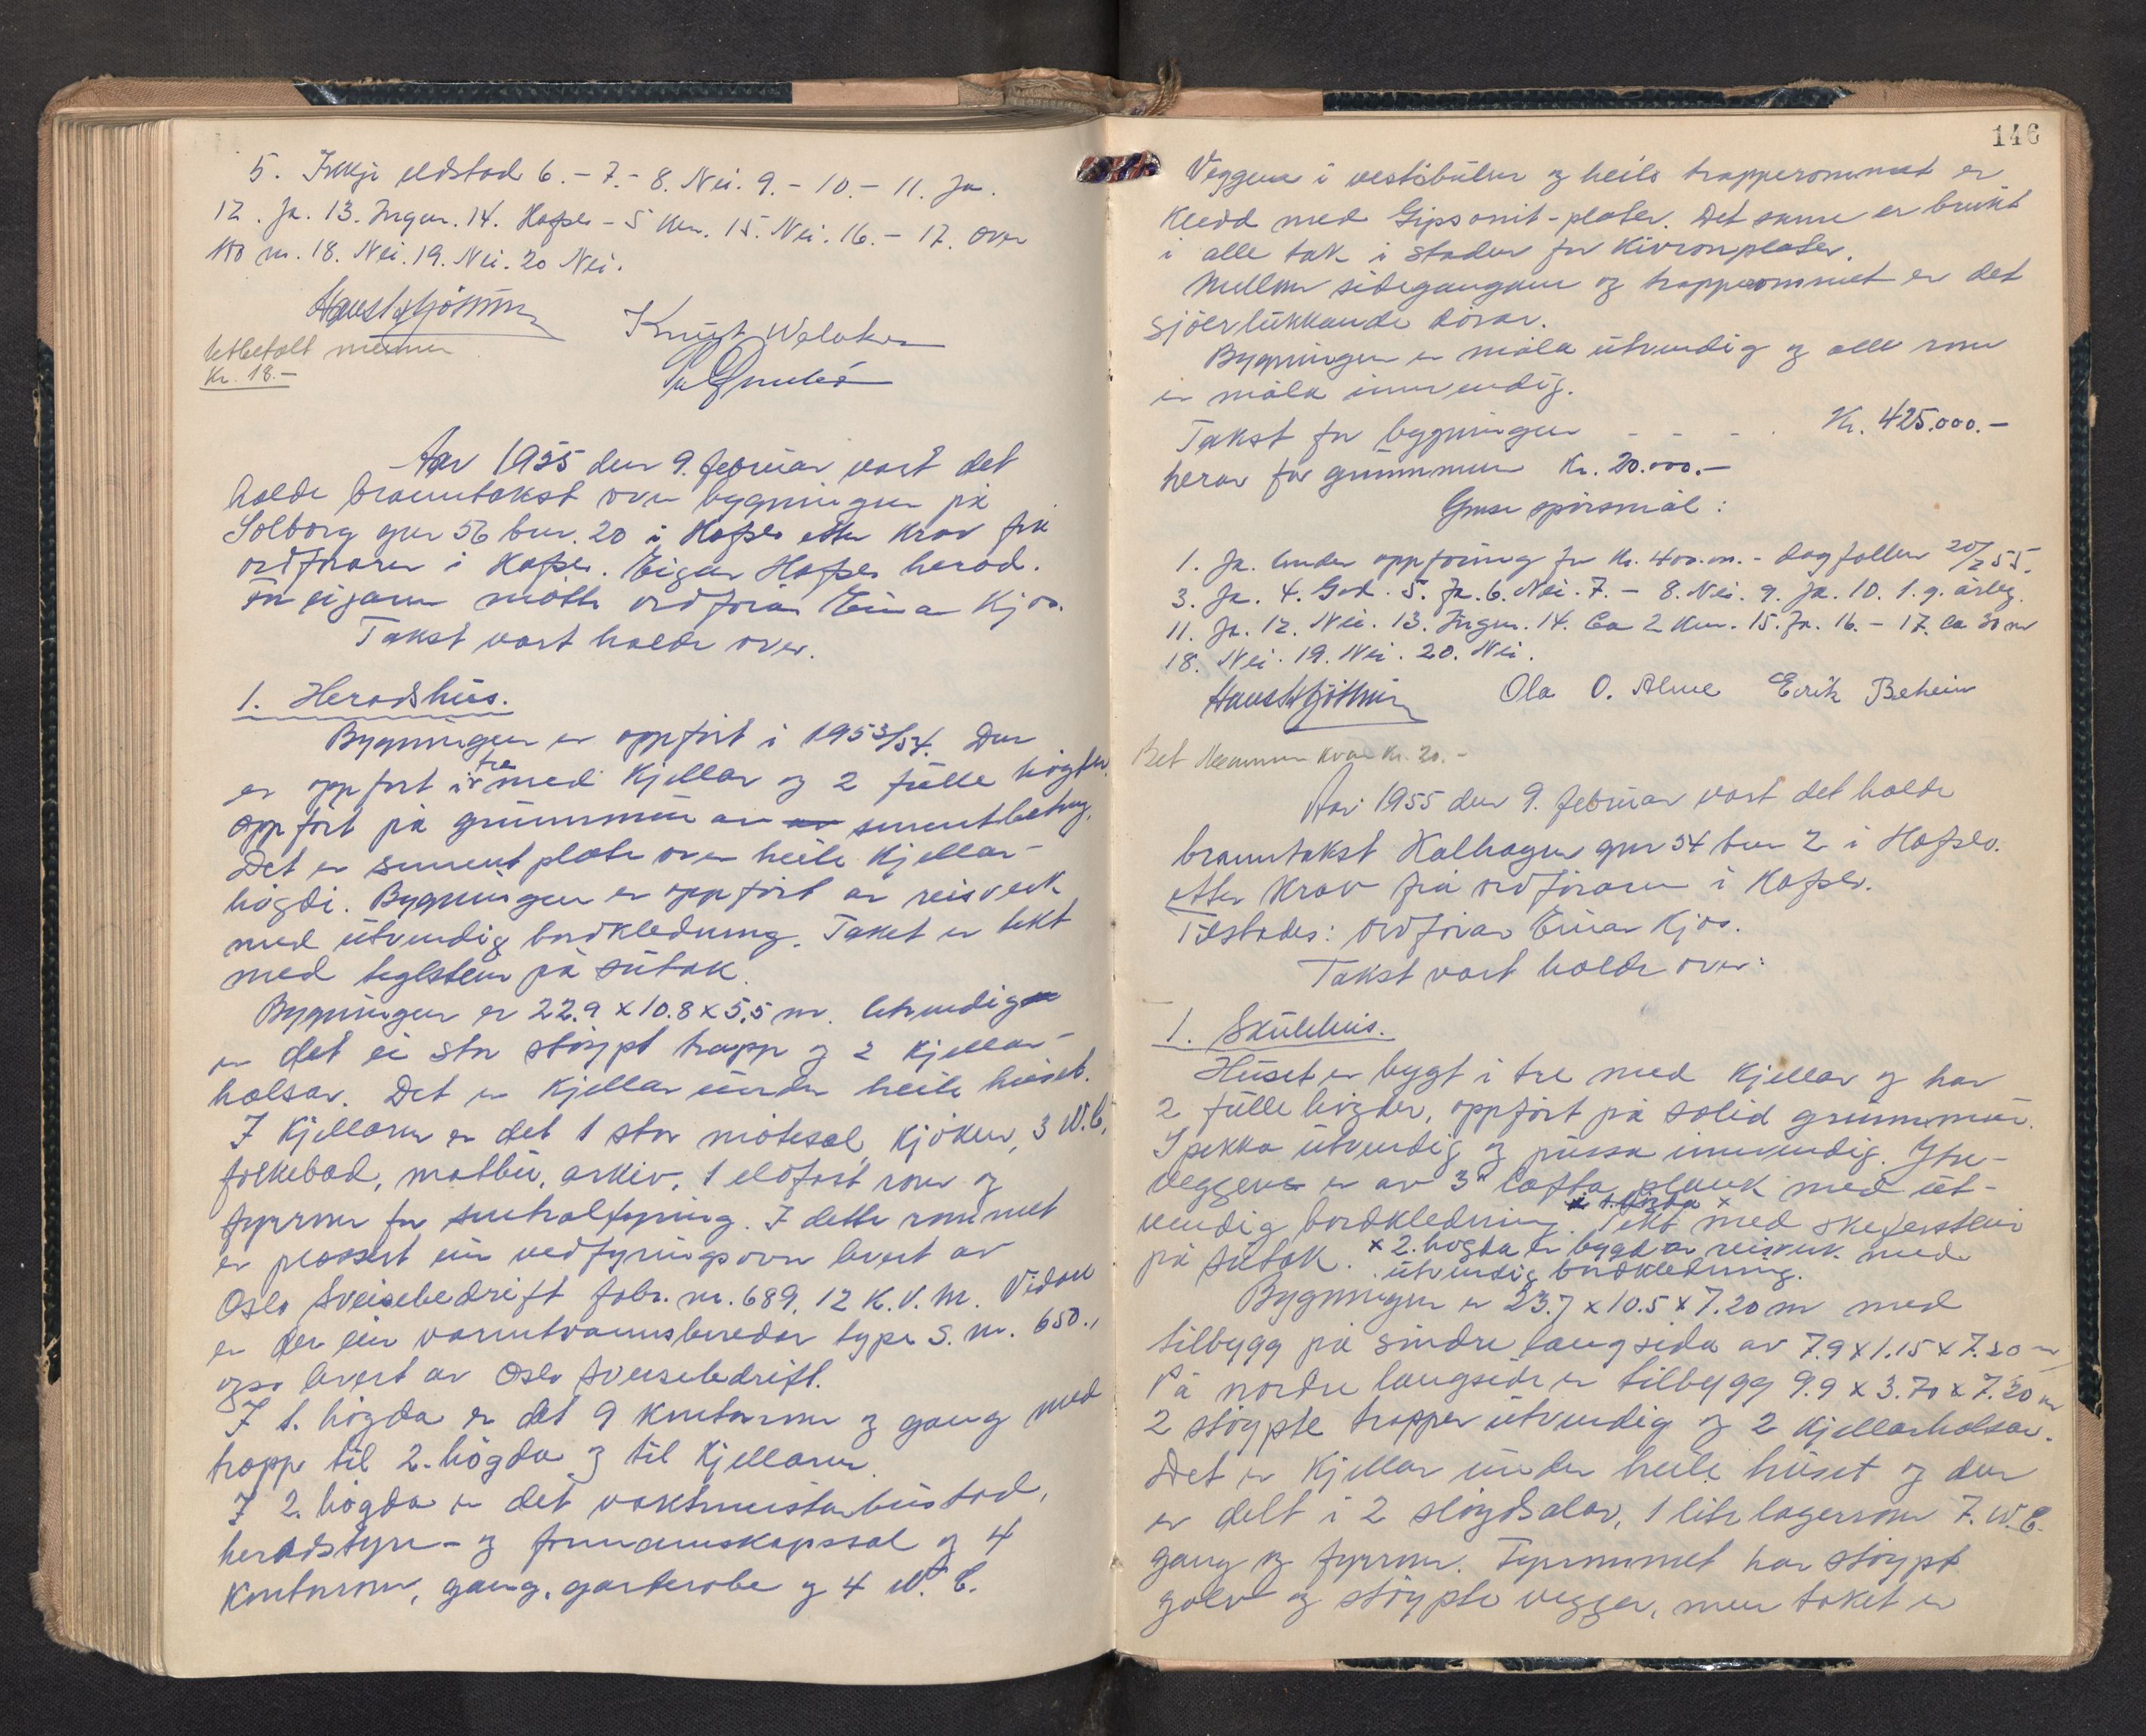 5. Ikkje eldstad 6. - 7. - 8. Nei. 9. - 10. - 11. Ja.
12. Ja. 13. Ingen. 14. Hafslo - 5 km. 15. Nei. 16. - 17. over
100 m. 18. Nei. 19. Nei. 20 Nei.
Knut Welaker
Utbetalt
Kr. 18.-
Aar 1955 den 9. februar vart det
halde branntakst over bygningen på
Solborg gnr 56 bnr. 20 i Hafslo etter krav frå
ordføraren i Hafslo. Eigar Hafslo herad.
For eigaren møtte ordførar Einar Kjos.
Takst vart halde over.
1. Heradshus.
Bygningen er oppført i 1953/54. Den
er oppført i tre med kjellar og 2 fulle høgder
oppført på grunnmur av sementbetong.
Det er sementplate over heile kjellar-
høgdi. Bygningen er oppført av reisverk
med utvendig bordkledning. Taket er tekt
med teglstein på sutak.
Bygningen er 22.9 x 10.8 x 5.5 m. Utvendig
er det ei stor støypt trapp og 2 kjellar-
halsar. Det er kjellar under heile huset.
I kjellaren er det 1 stor møtesal, kjøken, 3 W.C,
folkebad, matbu, arkiv, 1 eldfast rom og
fyrrom for sentralfyring. I dette rommet
er plassert ein vedfyringsovn levert av
Oslo Sveisebedrift fabr. nr. 689, 12 K.V.M. Vidare
er der ein varmtvannsbereder type S. nr. 650.,
også levert av Oslo Sveisebedrift.
I 1. høgda er det 9 kontorrom og gang med
trapp til 2. høgda og til kjellaren.
I 2. høgda er det vaktmeistarbustad,
heradstyre- og formannskapssal og 4
kontorrom, gang, garderobe og 4 W.C.
146
Veggene i vestibulen og heile trapperommet er
kledd med Gipsonit-plater. Det same er brukt
i alle tak i staden for kvironplater.
Mellom sidegangane og trapperommet er det
sjølvlukkande dørar.
Bygningen er måla utvendig og alle rom
er måla innvendig.
Takst for bygningen - - - . Kr. 425.000.-
herav for grunnmuren Kr. 20.000.-
Gmse spørsmål:
1. Ja. Under oppføring for Kr. 400.000.- Dagfallen 20/2 55.
3. Ja. 4. God. 5. Ja. 6. Nei. 7. - 8. Nei. 9. Ja. 10. 1. g. årleg.
11. Ja. 12. Nei. 13. Ingen. 14. Ca 2 km. 15. Ja. 16. - 17. Ca 30 m
18. Nei. 19. Nei. 20. Nei.
Ola O. Alme Eirik Beheim
Bet kvar Kr. 20.-
Aar 1955 den 9. februar vart det halde
branntakst Kalhagen gnr 54 bnr 2 i Hafslo.
etter krav frå ordføraren i Hafslo.
Tilstades: Ordførar Einar Kjos.
Takst vart halde over:
1. Skulehus.
Huset er bygt i tre med kjellar og har
2 fulle høgder, oppført på solid grunnmur.
Spekka utvendig og pussa innvendig. Ytre-
veggene er av 3" lafta plank med ut-
i 1. høgda x
vendig bordkledning. Tekt med skiferstein
på sutak. x 2. høgda er bygd av reisverk med
utvendig bordkledning.
Bygningen er 23.7 x 10.5 x 7.20 m med
tilbygg på søndre langsida av 7.9 x 1.15 x 7.20 m
På nordre langside er tilbygg 9.9 x 3.70 x 7.20 m
2 støypte trapper utvendig og 2 kjellarhalsar.
Det er kjellar under heile huset og den
er delt i 2 sløydsalar, 1 lite lagerrom 7. W.C.
gang og fyrrom. Fyrrommet har støypt
golv og støypte vegger, men taket er